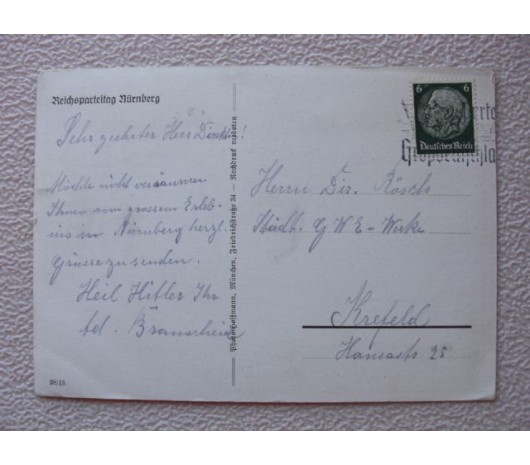 Reichsparteitag Nürnberg
Sehr geehrter Herr Direktor!
Möchte nicht versäumen
Ihnen vom grossem Erleb-
nis in Nürnberg herzl.
Grüsse zu senden.
Heil Hitler Ihr
Photo-Hoffmann, München, Friedrichstraße 34 — Nachdruck verboten
38/15
6 6
Deutsches Reich
Großdeutschla
Herrn Dir. Rösch
Städt. G W E - Werke
Krefeld
Hansastr. 25